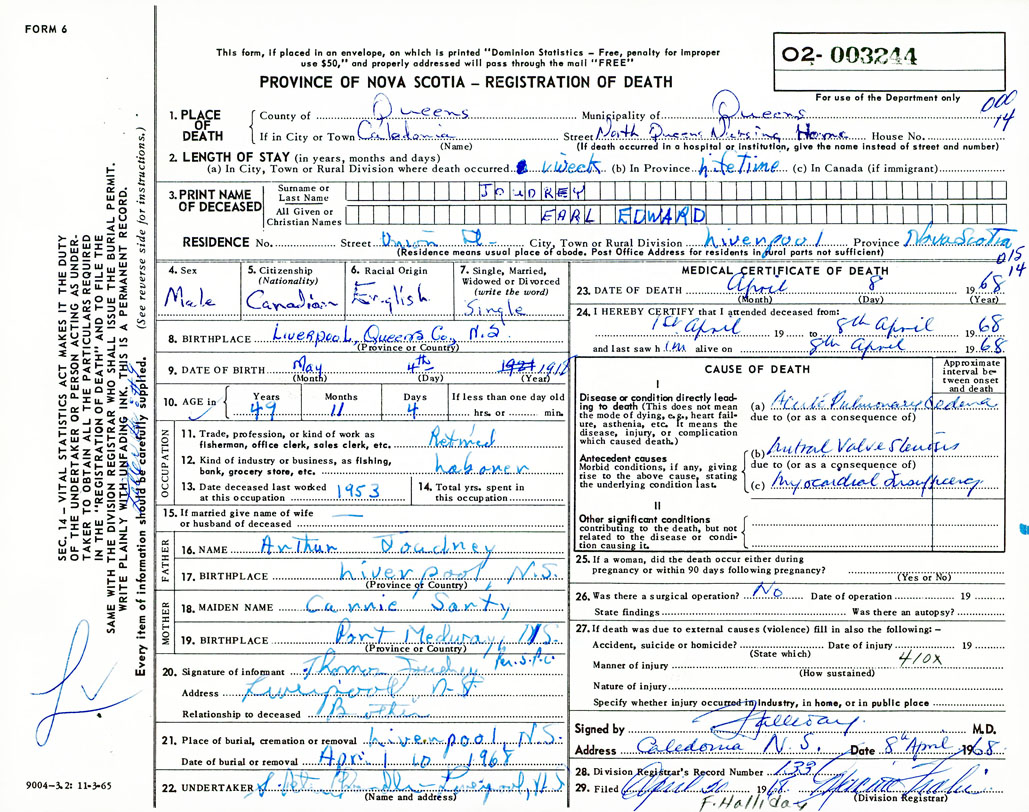 FORM 6
This form, if placed in an envelope, on which is printed "Dominion Statistics – Free, penalty for improper
use $50," and properly addressed will pass through the mail "FREE"
PROVINCE OF NOVA SCOTIA – REGISTRATION OF DEATH
O2- 003244
For use of the Department only
000
14
1. PLACE OF DEATH
County of Queens Municipality of Queens
If in City or Town Caledonia Street North Queens Nursing Home House No.
(Name) (If death occurred in a hospital or institution, give the name instead of street and number)
2. LENGTH OF STAY (in years, months and days)
(a) In City, Town or Rural Division where death occurred 1 week (b) In Province lifetime (c) In Canada (if immigrant)
3. PRINT NAME OF DECEASED
Surname or Last Name JOUDREY
All Given or Christian Names EARL EDWARD
RESIDENCE No. Street Union St City, Town or Rural Division Liverpool Province Nova Scotia
(Residence means usual place of abode. Post Office Address for residents in rural parts not sufficient)
015
14
4. Sex
Male
5. Citizenship (Nationality)
Canadian
6. Racial Origin
English
7. Single, Married, Widowed or Divorced (write the word)
Single
8. BIRTHPLACE Liverpool, Queens Co., N.S.
(Province or Country)
9. DATE OF BIRTH May 4th 1921 191
(Month) (Day) (Year)
10. AGE in
Years Months Days If less than one day old
49 11 4 hrs. or min.
OCCUPATION
11. Trade, profession, or kind of work as
fisherman, office clerk, sales clerk, etc. Retired
12. Kind of industry or business, as fishing,
bank, grocery store, etc. Laborer
13. Date deceased last worked
at this occupation 1953
14. Total yrs. spent in
this occupation
15. If married give name of wife
or husband of deceased —
FATHER
16. NAME Arthur Joudrey
17. BIRTHPLACE Liverpool, N.S.
(Province or Country)
MOTHER
18. MAIDEN NAME Cannie Santy
19. BIRTHPLACE Port Medway, N.S.
(Province or Country)
20. Signature of informant Thomas Joudrey
Address Liverpool, N.S.
Relationship to deceased Brother
21. Place of burial, cremation or removal Liverpool, N.S.
Date of burial or removal April 10 1968
22. UNDERTAKER Liverpool, N.S.
(Name and address)
MEDICAL CERTIFICATE OF DEATH
23. DATE OF DEATH April 8 1968
(Month) (Day) (Year)
24. I HEREBY CERTIFY that I attended deceased from:
1st April 19 to 8th April 1968
and last saw him alive on 8th April 1968
CAUSE OF DEATH
Approximate interval between onset and death
I
Disease or condition directly leading to death (This does not mean the mode of dying, e.g., heart failure, asthenia, etc. It means the disease, injury, or complication which caused death.)
(a) Acute Pulmonary Oedema
due to (or as a consequence of)
Antecedent causes
Morbid conditions, if any, giving rise to the above cause, stating the underlying condition last.
(b) Mitral Valve Stenosis
due to (or as a consequence of)
(c) Myocardial Insufficiency
II
Other significant conditions
contributing to the death, but not related to the disease or condition causing it.
25. If a woman, did the death occur either during
pregnancy or within 90 days following pregnancy?
(Yes or No)
26. Was there a surgical operation? No Date of operation 19
State findings Was there an autopsy?
27. If death was due to external causes (violence) fill in also the following: –
Accident, suicide or homicide? Date of injury 19
(State which)
410X
Manner of injury
(How sustained)
Nature of injury
Specify whether injury occurred in industry, in home, or in public place
Signed by Halliday M.D.
Address Caledonia N.S. Date 8th April 1968
28. Division Registrar's Record Number 133
29. Filed April 20 1968
(Division Registrar)
F. Halliday
SEC. 14 – VITAL STATISTICS ACT MAKES IT THE DUTY
OF THE UNDERTAKER OR PERSON ACTING AS UNDERTAKER TO OBTAIN ALL THE PARTICULARS REQUIRED
IN THE "REGISTRATION OF DEATH" AND TO FILE THE
SAME WITH THE DIVISION REGISTRAR WHO SHALL ISSUE THE BURIAL PERMIT.
WRITE PLAINLY WITH UNFADING INK. THIS IS A PERMANENT RECORD.
Every item of information should be carefully supplied. (See reverse side for instructions.)
9004-3.2: 11-3-65